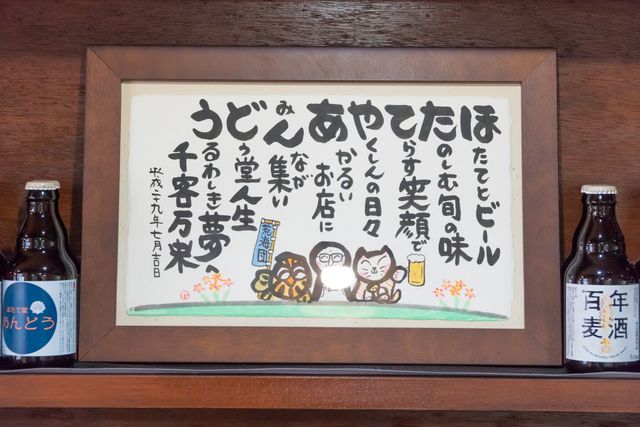 ほたてとビール
たのしむ旬の味
てらす笑顔で
やくしんの日々
あかるいお店に
みんなが集い
どう堂人生
うるわしき夢へ
千客万来
平成二十九年七月吉日
荒海団
ほたて家
あんどう
百年
麦酒